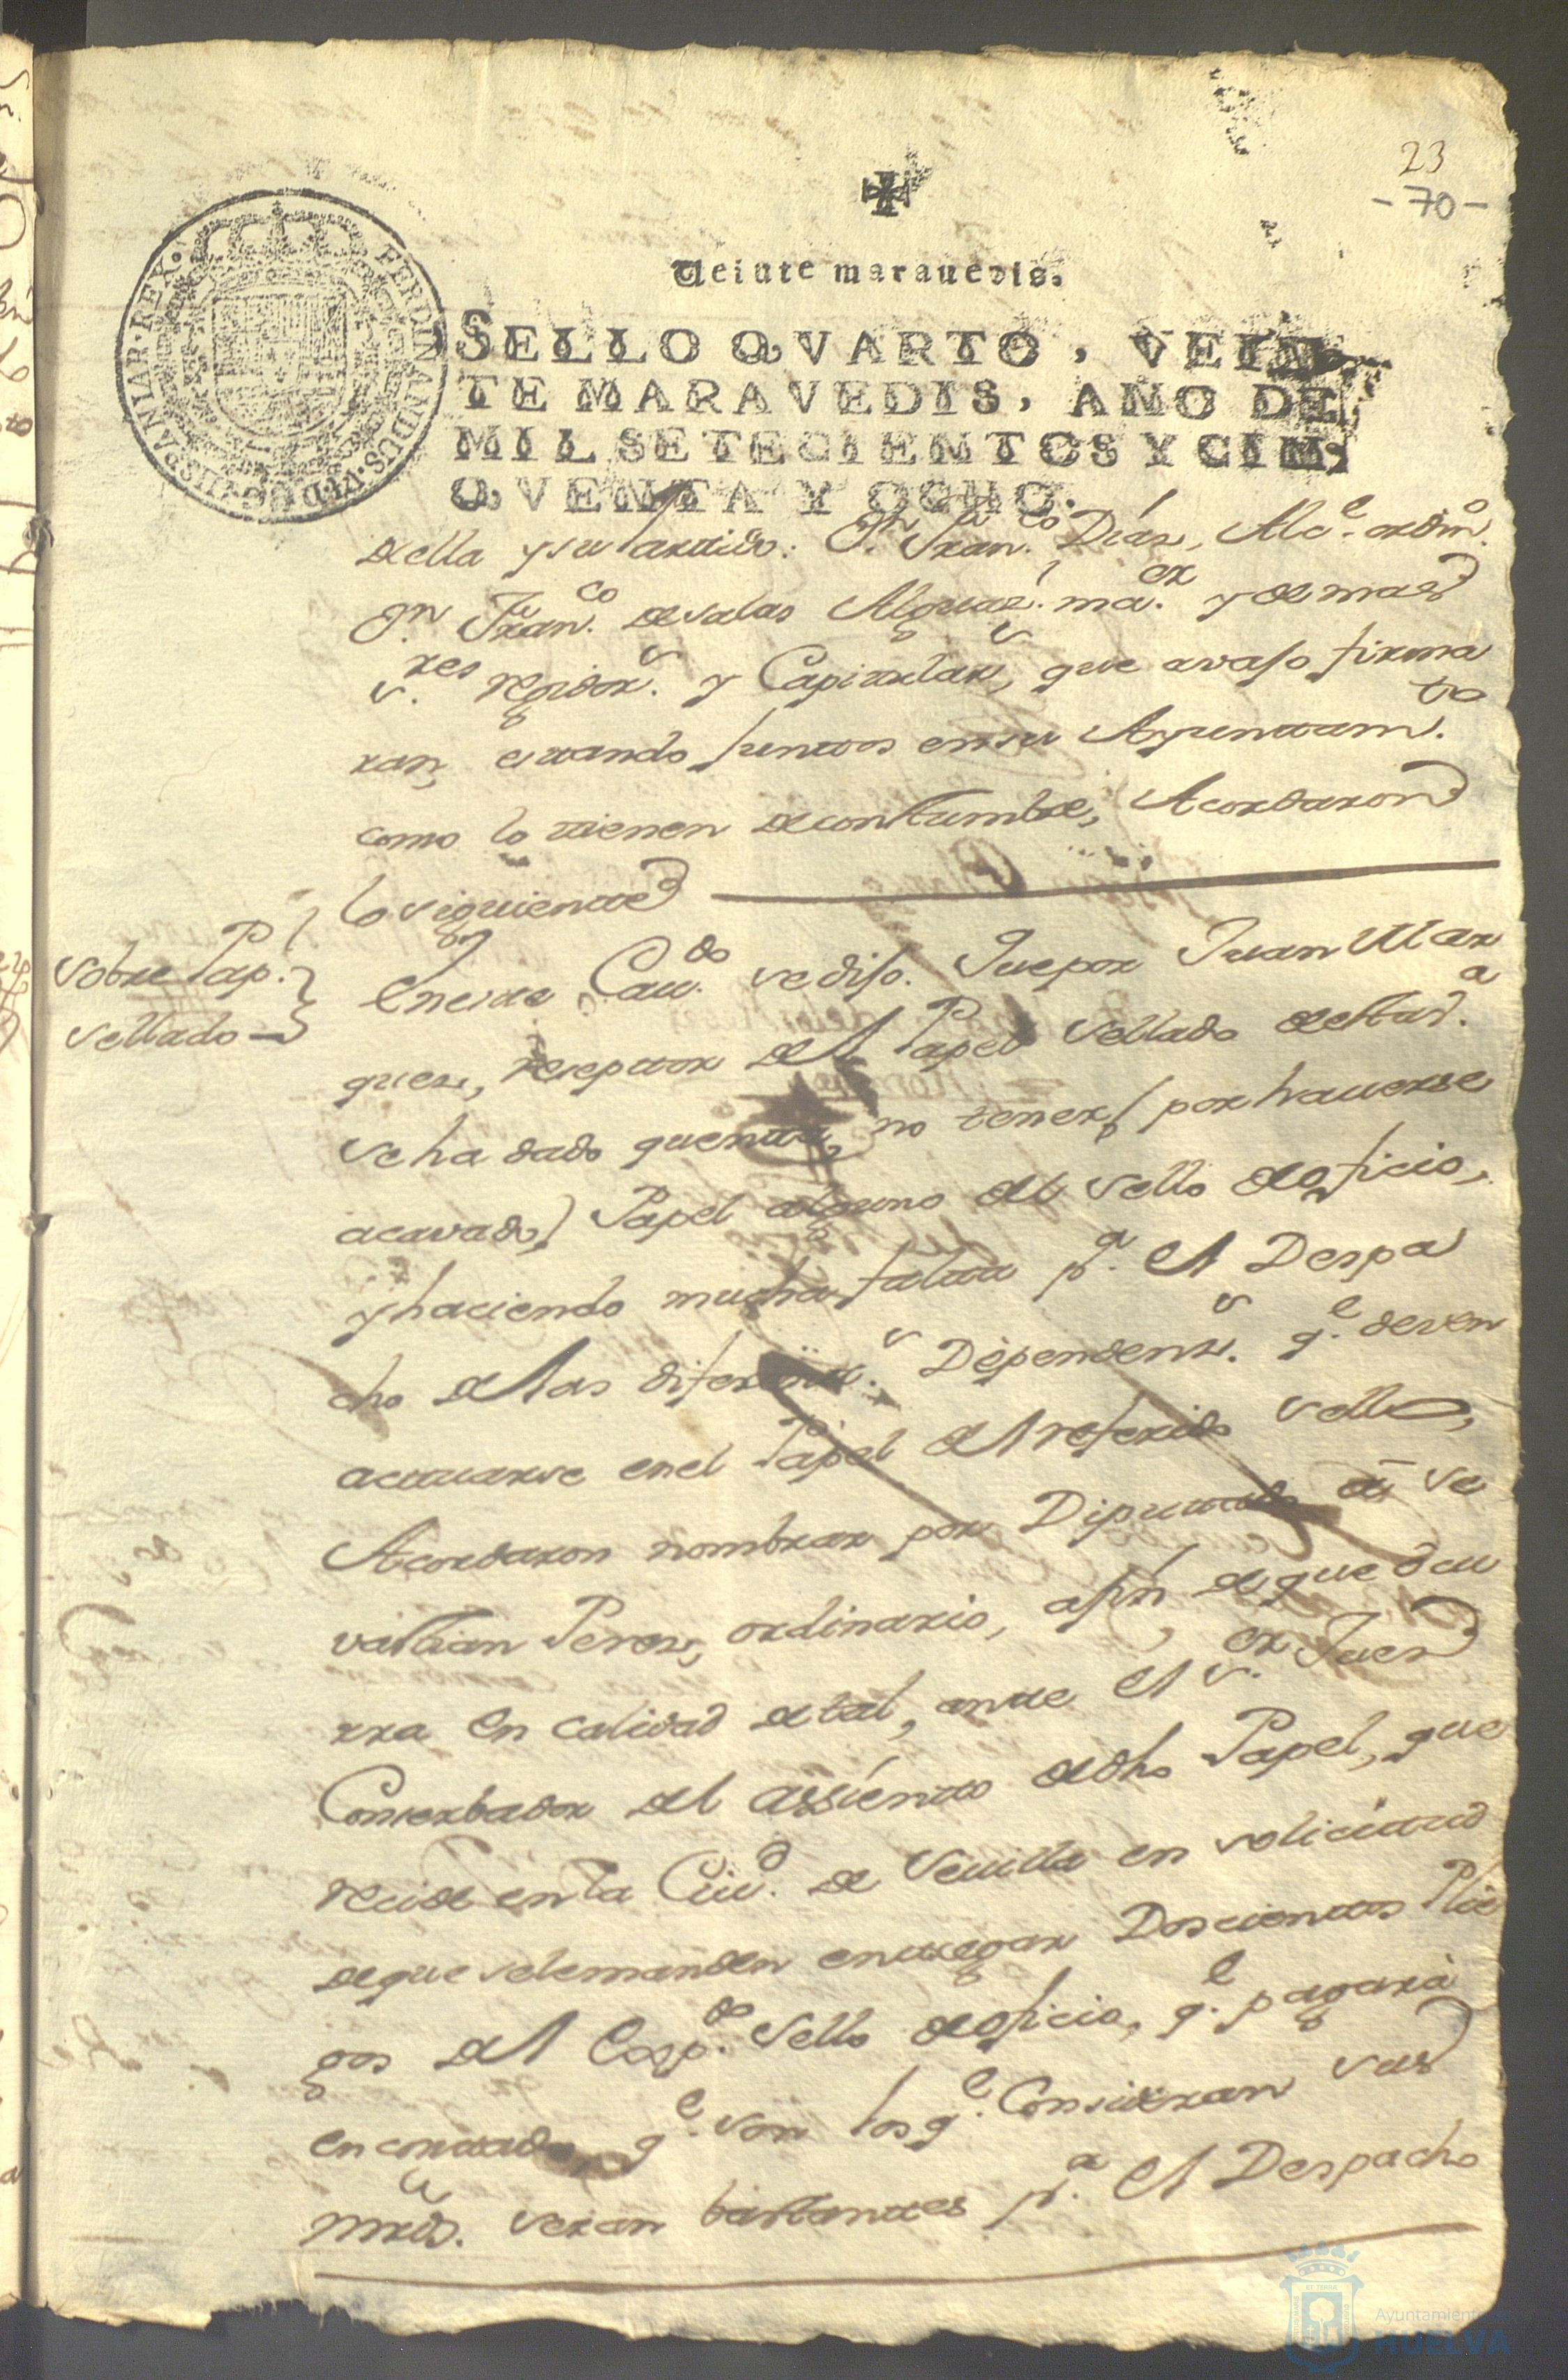 23
-70-
Veinte maravedis.
SELLO QVARTO, VEIN-
TE MARAVEDIS, AÑO DE
MIL SETECIENTOS Y CIN-
QVENTA Y OCHO.
FERDINANDUS·VI·D·G·HISPANIAR·REX·
de ella y su Partido: Dn. Franco. Dias, Alce. ordino.
Dn. Franco. de salas Alguazl. maor. y demas
sres. regidors. y Capitulars, que avajo firma
ran, estando juntos en su Ayuntamto.
como lo tienen de constumbre, Acordaron
lo siguiente
Sobre Pap.
sellado
En este Cavdo. se dijo. Que por Juan Mar
ques, reseptor del Papel sellado de esta va.
se ha dado quenta, no tener (por haverse
acavado) Papel alguno del sello de oficio,
y haciendo mucha falta pa. el Despa
cho de las diferents. Dependens. qe. deven
actuarse en el Papel del referido sello,
Acordaron nombrar por Diputado a Se
vastian Peres, ordinario, a fin de que ocu
rra en calidad de tal, ante el sor. Juez
Conserbador del assiento de dho Papel, que
recide en la Ciud. de Sevilla en solicitud
de que se le manden entregar Doscientos Plie
gos del Expdo. sello de oficio, qe. pagará
en contado, qe. son los qe. Consideran sus
mrds. seran bastantes pa. el Despacho
Ayuntamiento de
HUELVA